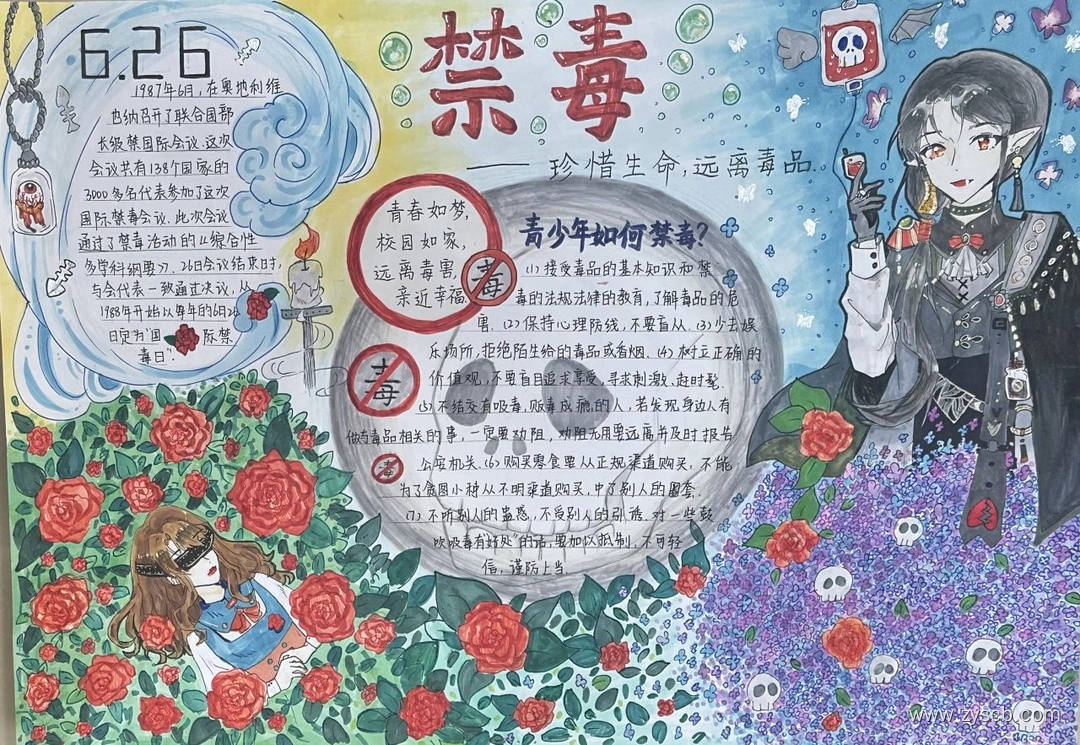 6.26
1987年6月,在奥地利维
也纳召开了联合国部
长级禁国际会议.这次
会议共有138个国家的
3000多名代表参加了这次
国际禁毒会议.此次会议
通过了禁毒活动的《综合性
多学科纲要》.26日会议结束时,
与会代表一致通过决议,从
1988年开始以每年的6月26
日定为"国际禁
毒日".
禁毒
——珍惜生命,远离毒品.
青春如梦,
校园如家,
远离毒害,
亲近幸福.
毒
毒
毒
青少年如何禁毒?
(1)接受毒品的基本知识和禁
毒的法规法律的教育,了解毒品的危
害.(2)保持心理防线,不要盲从.(3)少去娱
乐场所,拒绝陌生给的毒品或香烟.(4)树立正确的
价值观,不要盲目追求享受,寻求刺激,赶时髦.
(5)不结交有吸毒,贩毒成瘾的人,若发现身边人有
做与毒品相关的事,一定要劝阻,劝阻无用要远离并及时报告
公安机关.(6)购买零食要从正规渠道购买,不能
为了贪图小神从不明渠道购买,中了别人的圈套.
(7)不听别人的蛊惑,不受别人的引诱.对一些鼓
吹吸毒有好处"的话,要加以抵制,不可轻
信,谨防上当.
www.zyscb.com